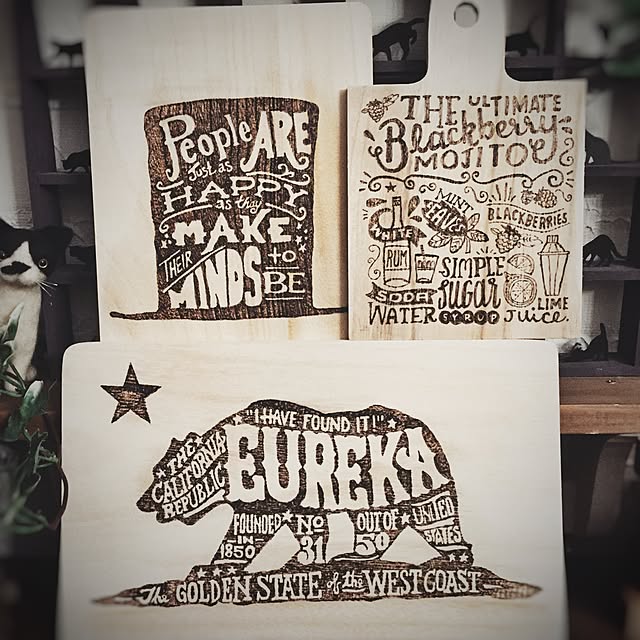 People ARE
Just as
HAPPY
as they
MAKE
THEIR
MINDS
to
BE
THE ULTIMATE
Blackberry
MOJITO
MINT
LEAVES
BLACKBERRIES
WHITE
RUM
SIMPLE
SUGAR
SYRUP
SODA
WATER
LIME
Juice.
"I HAVE FOUND IT!"
THE
CALIFORNIA
REPUBLIC
EUREKA
FOUNDED
IN
1850
No
31
OUT OF
50
UNITED
STATES
The GOLDEN STATE of the WEST COAST